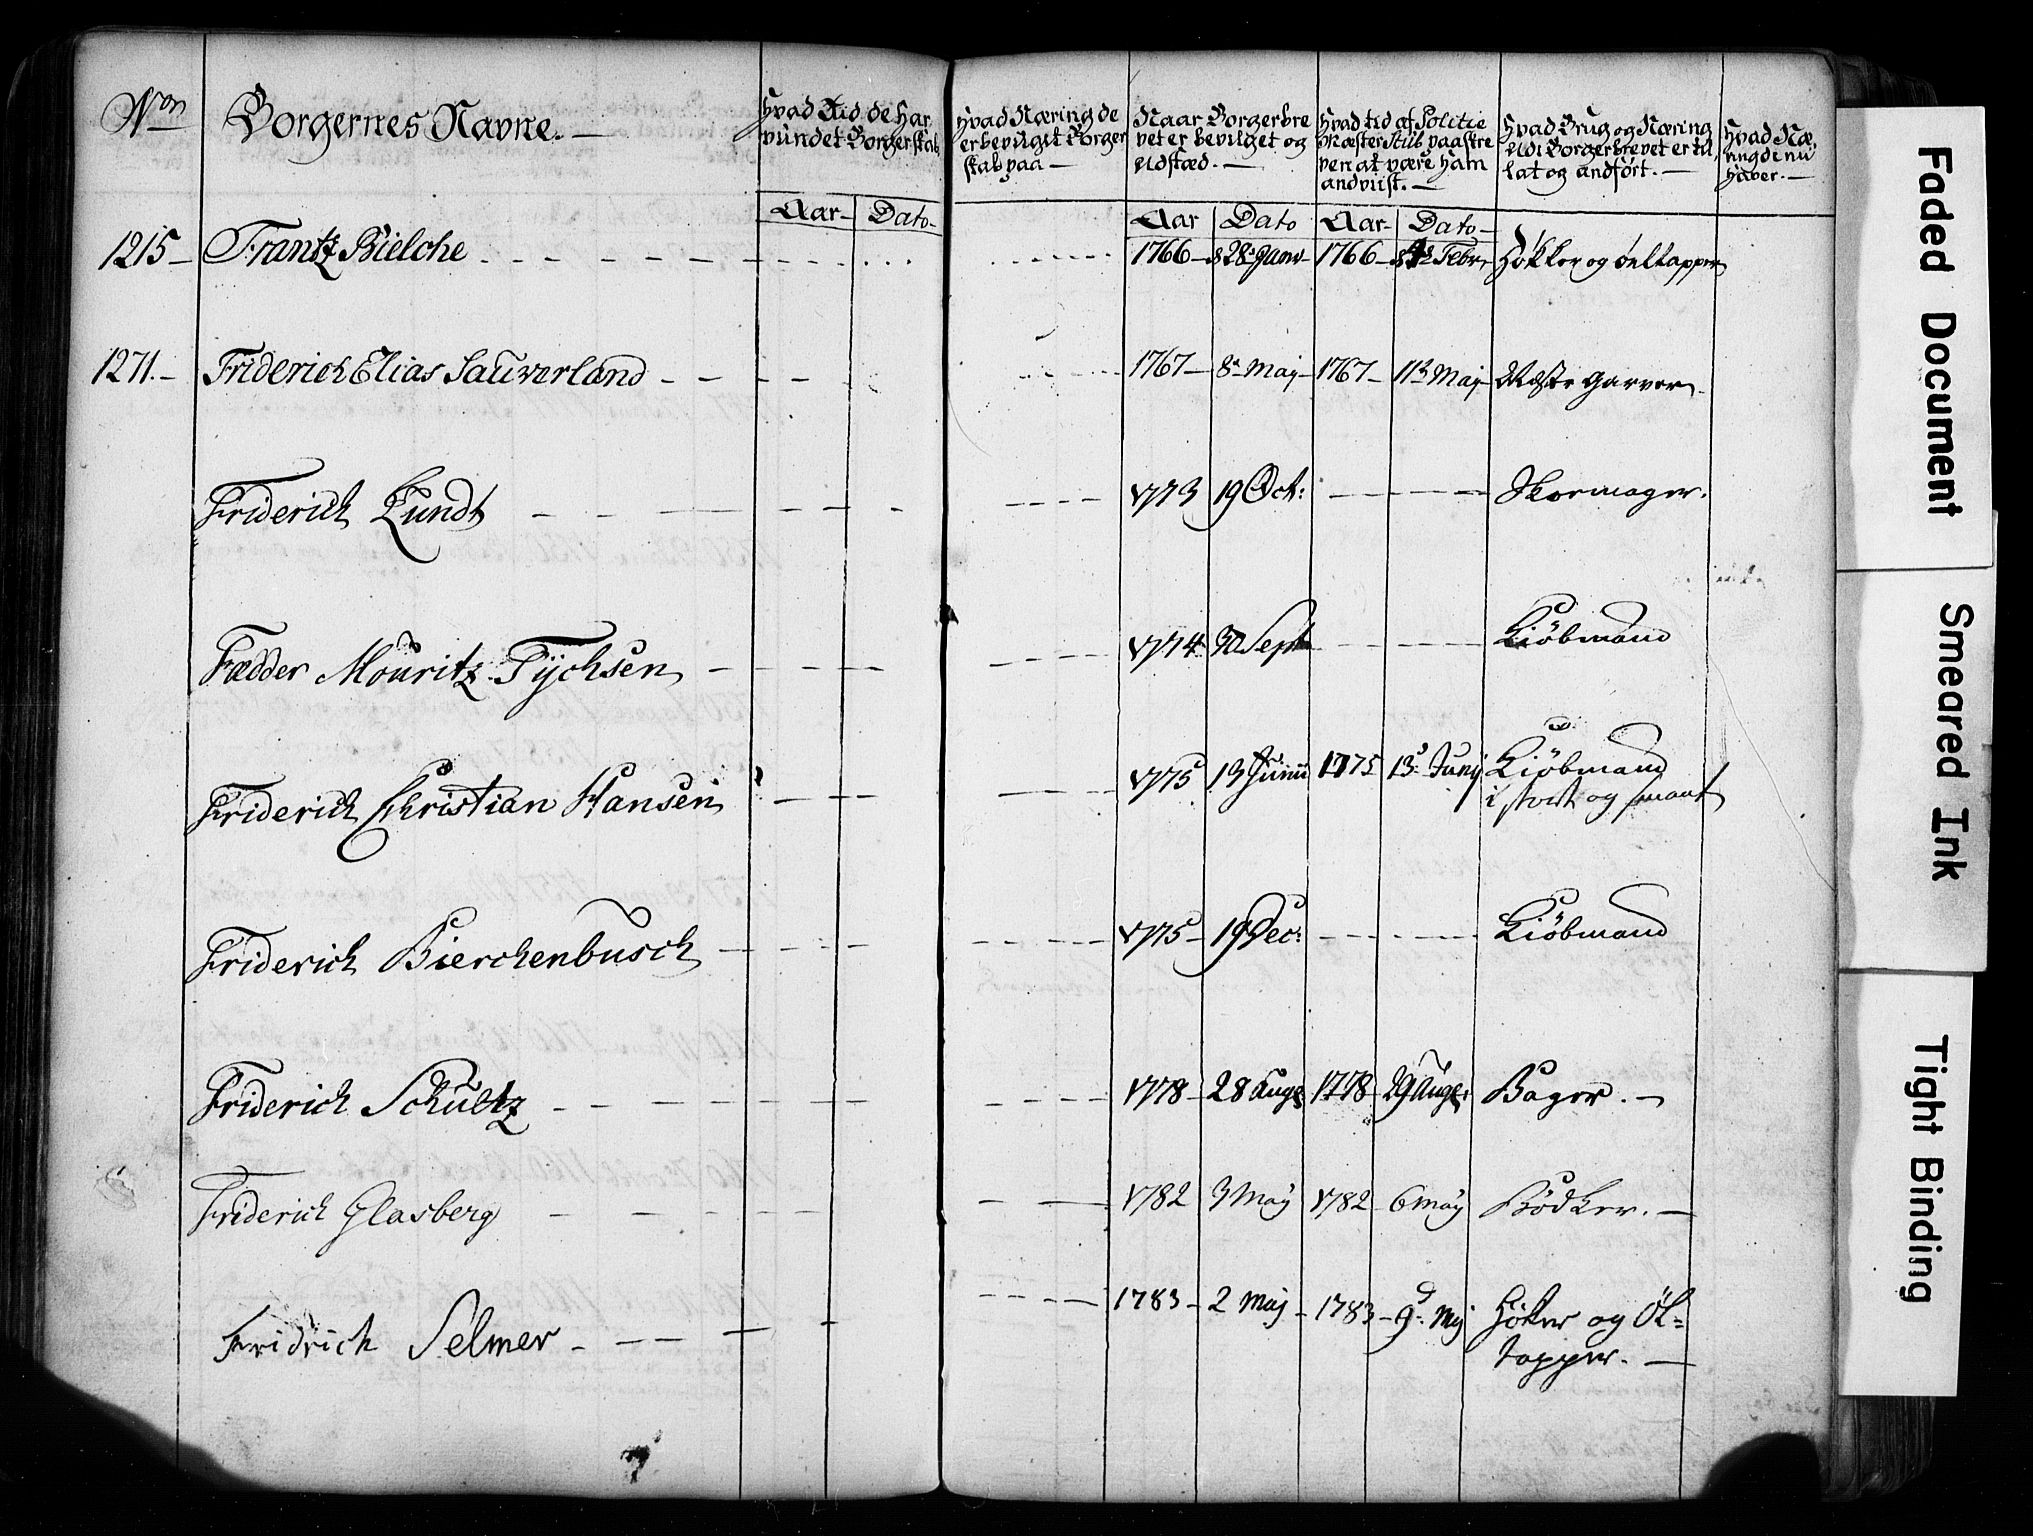 Non
Borgernes Navne.
Hvad Tid de har
vundet Borgerskab
Hvad Næring de
er bevilget Borger
skab paa
Naar Borgerbre
vet er bevilget og
udstæd.
Hvad tid af Politie
Mæster Stub paaskre
ven at være ham
andviist.
Hvad Brug og Næring
udi Borgerbrevet er til
lat og andført.
Hvad Næ
ring de nu
haver.
Aar Dato Aar Dato Aar Dato
1215 Frantz Bielche 1766 d 28 Janv 1766 Febr Høkker og øeltapper
1271. Friderich Elias Sauverland 1767 8 Maj 1767 11 Maj Garver
Friderich Lundt 1773 19 Oct: Skoemager.
Fædder Mouritz Tychsen 1774 30 Sept Kiøbmand
Friderich Christian Hansen 1775 13 Junii 1775 13 Junij Kiøbmand
i stort og smaat
Friderich Bierchenbusch 1775 19 Dec: Kiøbmand
Friderich Schultz 1778 28 Aug 1778 29 Aug: Bager.
Friderich Glasberg 1782 3 May 1782 6 May Bødker.
Fridrich Selmer 1783 2 Maj 1783 9 Mj Høker og Øl=
tapper.
Faded Document
Smeared Ink
Tight Binding